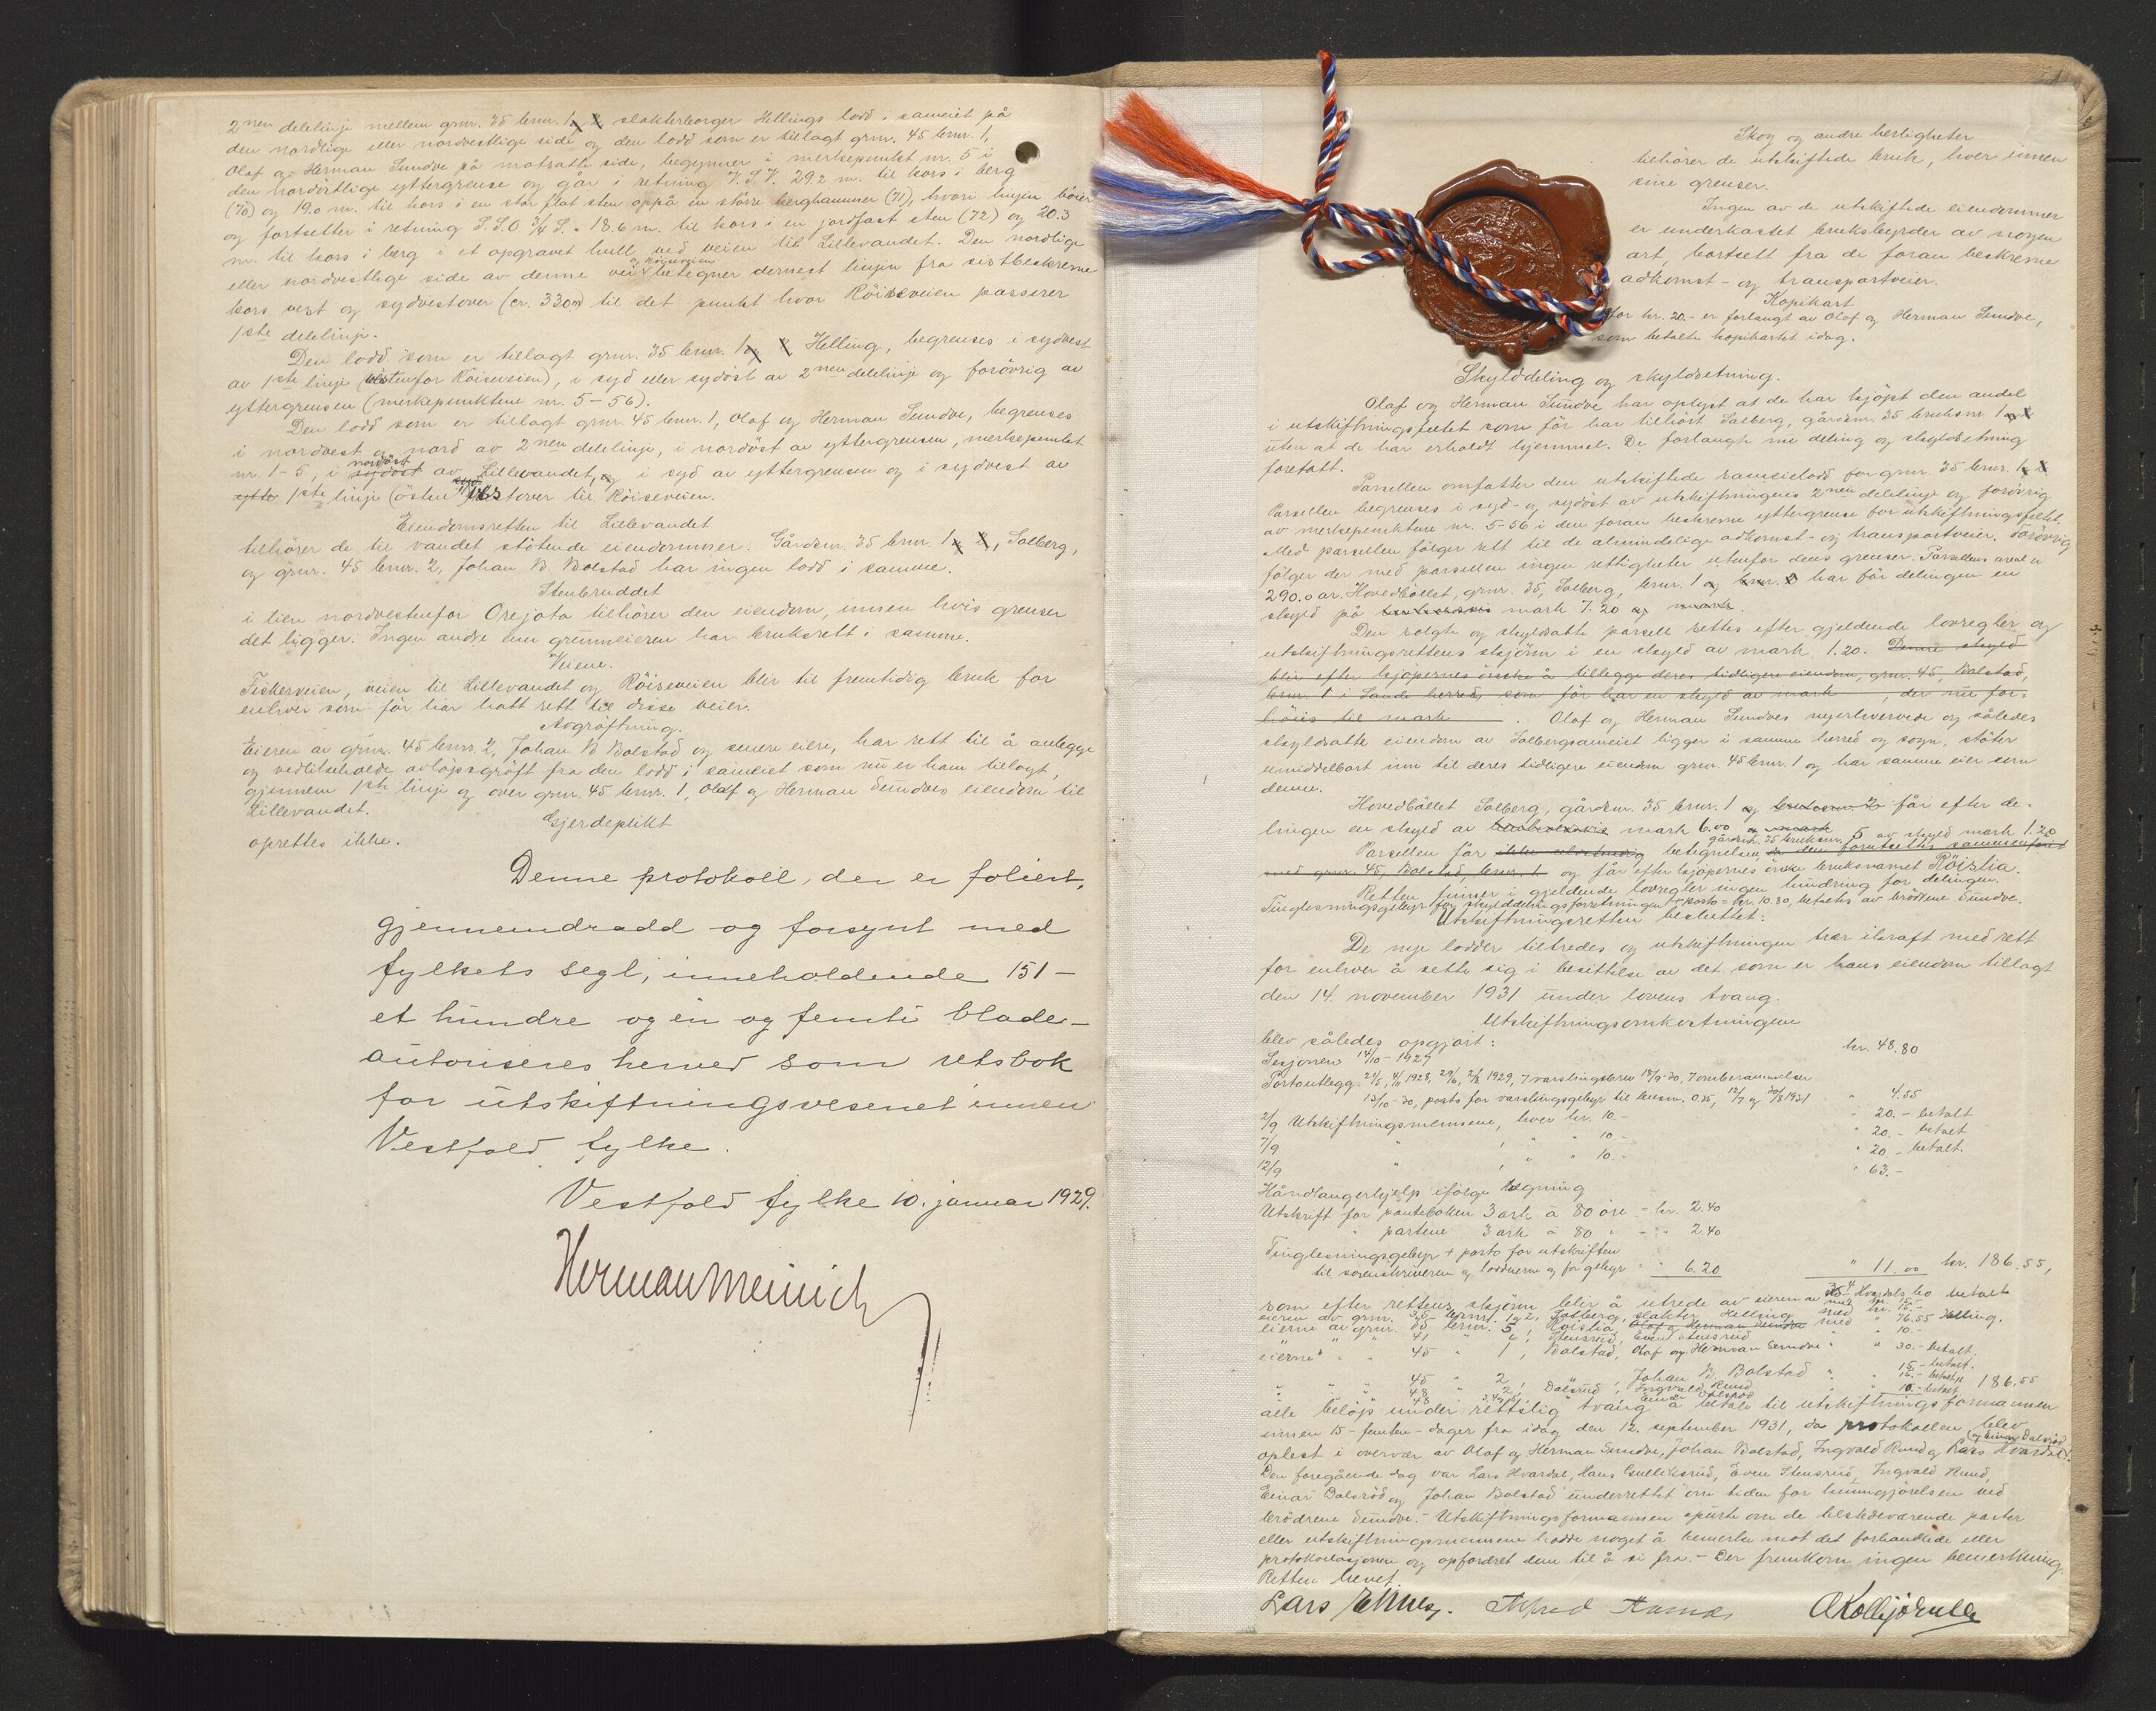 2nen delelinje mellem grnr. 35 brnr. 1 slakterborger Hellings lodd i sameiet på
den nordlige eller nordvestlige side og den lodd som er tillagt grnr. 45 brnr. 1,
Olaf og Herman Sundve på motsatte side, begynner i merkepunktet nr. 5 i
den nordöstlige yttergrense og går i retning V.S.V. 29.2 m. til kors i berg
(70) og 19.0 m. til kors i en stor flat sten oppå en större berghammer (71), hvori linjen böier
og fortsetter i retning S.S.O ¾ S. 18.6 m. til kors i en jordfast sten (72) og 20.3
m. til kors i berg i et opgravet hull ved veien til Lillevandet. Den nordlige
eller nordvestlige side av denne vei og Röiseveien betegner dernest linjen fra sistbeskrevne
kors vest og sydvestover (ca. 330 m) til det punkt hvor Röiseveien passerer
1ste delelinje.
Den lodd som er tillagt grnr. 35 brnr. 1 Helling, begrenses i sydvest
av 1ste linje (vestenfor Röiseveien), i syd eller sydöst av 2nen delelinje og forövrig av
yttergrensen (merkepunktene nr. 5-56).
Den lodd som er tillagt grnr. 45 brnr. 1, Olaf og Herman Sundve, begrenses
i nordvest og nord av 2nen delelinje, i nordöst av yttergrensen, merkepunkt
nr. 1-5, i nordöst av Lillevandet, i syd av yttergrensen og i sydvest av
1ste linje (östen til Röiseveien.
Eiendomsretten til Lillevandet
tilhörer de til vandet stötende eiendommer. Gårdsnr. 35 brnr. 1, Solberg,
og grnr. 45 brnr. 2, Johan B. Bolstad har ingen lodd i samme.
Stenbruddet
i lien nordvestenfor Orejota tilhörer den eiendom, innen hvis grenser
det ligger. Ingen andre enn grunneieren har bruksrett i samme.
Veiene.
Fiskerveien, veien til Lillevandet og Röiseveien blir til fremtidig bruk for
enhver som för har hatt rett til disse veier.
Avgröftning.
Eieren av grnr. 45 brnr. 2, Johan B Bolstad og senere eiere, har rett til å anlegge
og vedlikeholde avlöpsgröft fra den lodd i sameiet som nu er ham tillagt,
gjennem 1ste linje og over grnr. 45 brnr. 1, Olaf og Herman Sundves eiendom til
Lillevandet.
Gjerdeplikt
oprettes ikke.
Denne protokoll, der er foliert,
gjennemdradd og forsynt med
fylkets segl, inneholdende 151 -
et hundre og én og femti blade -
autoriseres herved som retsbok
for utskiftningsvesenet innen
Vestfold fylke.
Vestfold fylke 10. januar 1929.
Herman Meinich
Skog og andre herligheter
tilhörer de utskiftede bruk, hver innen
sine grenser.
Ingen av de utskiftede eiendommer
er underkastet bruksbyrder av nogen
art, bortsett fra de foran beskrevne
adkomst- og transportveier.
Kopikart
for kr. 20.- er forlangt av Olaf og Herman Sundve,
som betalte kopikartet idag.
Skylddeling og skyldsetning.
Olaf og Herman Sundve har oplyst at de har kjöpt den andel
i utskiftningsfeltet som för har tilhört Solberg, gårdsnr. 35 bruksnr. 1
uten at de har erholdt hjemmel. De forlangte nu deling og skyldsetning
foretatt.
Parsellen omfatter den utskiftede sameielodd for grnr. 35 brnr. 1
Parsellen begrenses i syd- og sydöst av utskiftningens 2nen delelinje og forövrig
av merkepunktene nr. 5-56 i den foran beskrevne yttergrense for utskiftningsfeltet.
Med parsellen fölger rett til de almindelige adkomst- og transportveier. Forövrig
fölger der med parsellen ingen rettigheter utenfor dens grenser. Parsellens areal er
290.0 ar. Hovedböllet, grnr. 35, Solberg, brnr. 1 har för delingen en
skyld på mark 7.20
Den solgte og skyldsatte parsell settes efter gjeldende lovregler og
utskiftningsrettens skjönn i en skyld av mark 1.20. Denne skyld
blir efter kjöpernes önske å tillegge deres tidligere eiendom, grnr. 45, Bolstad,
brnr. 1 i Sande herred, som för har en skyld av mark , der nu for-
höies til mark . Olaf og Herman Sundves nyerhvervede og således
skyldsatte eiendom av Solbergsameiet ligger i samme herred og sogn, stöter
umiddelbart inn til deres tidligere eiendom grnr. 45 brnr. 1 og har samme eier som
denne.
Hovedböllet Solberg, gårdsnr. 35 brnr. 1 og bruksnr. 2 får efter de-
lingen en skyld av mark 6.00
Parsellen får ikke selvstendig betegnelsen gårdsnr. 35 bruksnr. 5 av skyld mark 1.20
med grnr. 45, Bolstad, brnr. 1 og får efter kjöpernes önske bruksnavnet Röislia.
Retten finner i gjeldende lovregler ingen hindring for delingen.
Tinglesningsgebyr for skylddelingsforretningen + porto = kr. 10.80, betaltes av brödrene Sundve.
Utskiftningsretten besluttet:
De nye lodder tiltredes og utskiftningen trær ikraft med rett
for enhver å sette sig i besittelse av det som er hans eiendom tillagt
den 14. november 1931 under lovens tvang.
Utskiftningsomkostningene
blev således opgjort:
Sesjonen 14/10-1927 kr. 48.80
Portoutlegg 21/5, 4/11 1928, 29/6, 2/8 1929, 7 varslingsbrev 18/9-30, 7 omberammelser
13/10-30, porto for varslingsgebyr til lensm. 0.85, 12/7 og 30/8 1931 " 4.55
2/9 Utskiftningsmennene, hver kr. 10.- " 20.- betalt
7/9 " , " " 10.- " 20.- betalt
12/9 " , " " 10.- " 20.- betalt.
Håndlangerhjelp ifölge regning " 63.-
Utskrift for panteboken 3 ark à 80 öre = kr. 2.40
" partene 3 ark à 80 " - " 2.40
Tinglesningsgebyr + porto for utskriften
til sorenskriveren og loddeierne og for gebyr " 6.20 " 11.00 kr. 186.55,
som efter rettens skjönn blir å utrede av eieren av
eieren av grnr. 35 brnr. 1 og 2, Solberg, slakter Helling med " 76.55 Helling.
eierne av grnr. 35 brnr. 5, Röislia, Olaf og Herman Sundve med
" " " 41 " " , Stensrud, Even Stensrud " " 10.-
eierne " " 45 " 1, Bolstad, Olaf og Herman Sundve " " 30.- betalt.
" " " 45 " 2, " , Johan B. Bolstad " " 15.- betalt.
" " " 48 " 2, Dalsrud, Ingvald Ruud " " 186.55
alle belöp under rettslig tvang å betale til utskiftningsformannen
innen 15 - femten - dager fra idag den 12. september 1931, da protokollen blev
oplest i overvær av Olaf og Herman Sundve, Johan Bolstad, Ingvald Ruud og Lars Hvardal.
Den foregående dag var Lars Hvardal, Hans Gulliksrud, Even Stensrud, Ingvald Ruud,
Einar Dalsröd og Johan Bolstad underrettet om tiden for kunngjörelsen ved
brödrene Sundve. - Utskiftningsformannen spurte om de tilstedeværende parter
eller utskiftningsmennene hadde noget å bemerke mot det forhandlede eller
protokollasjonen og opfordret dem til å si fra. - Der fremkom ingen bemerkning.
Retten hevet.
Lars